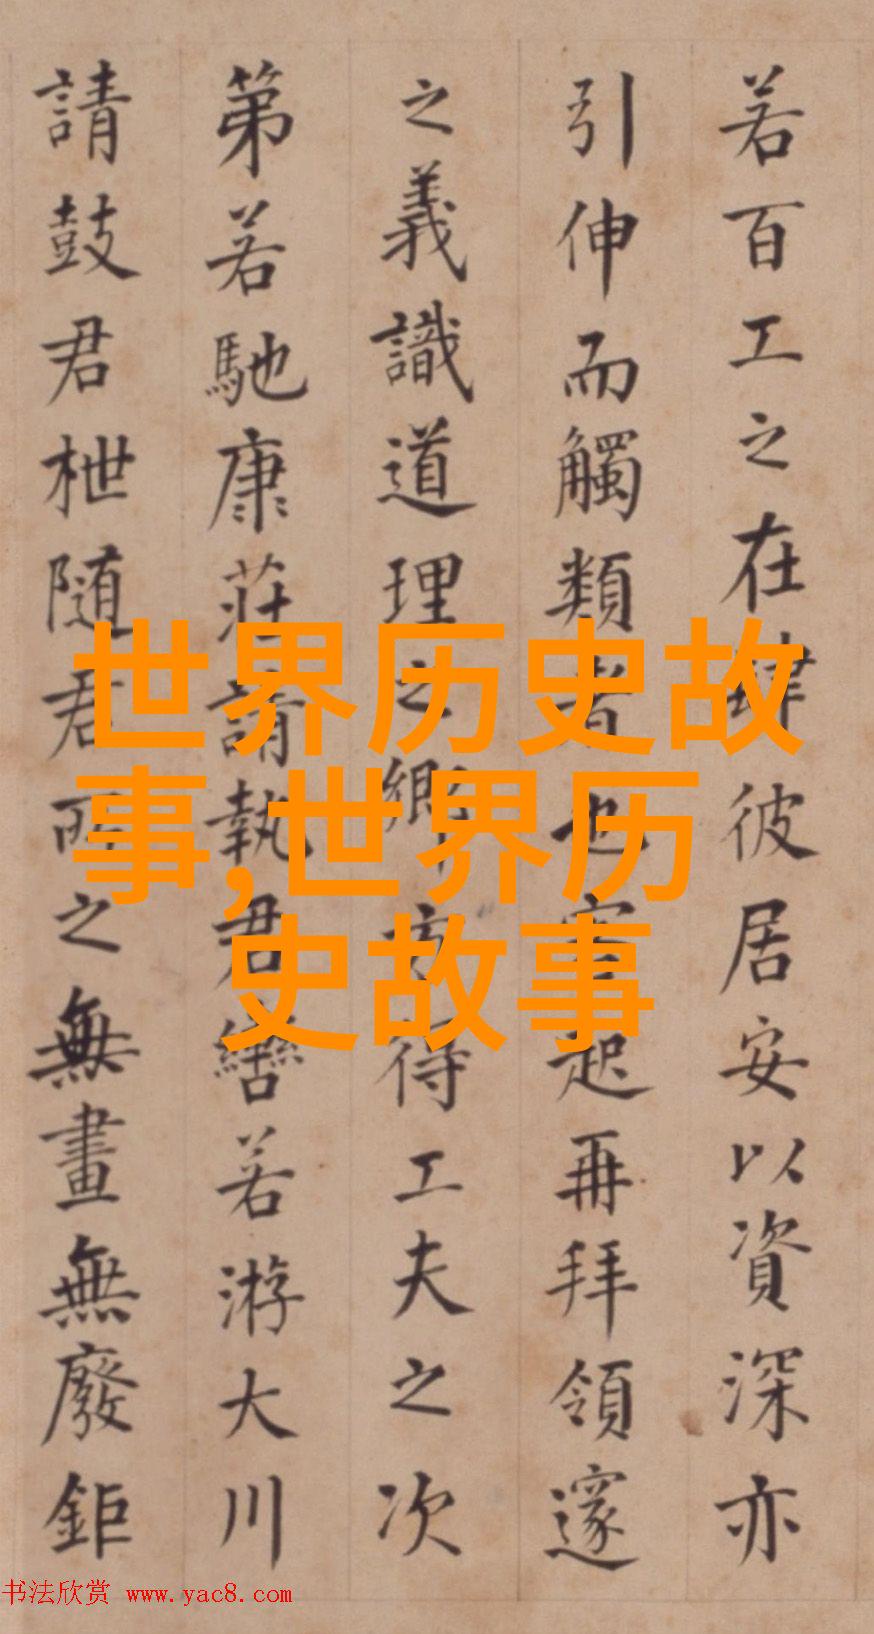 若百工之在肆彼居安以資深亦
引伸而觸類者也起再拜領邃
之義識道理之鄉得工夫之次
第若馳康莊請執君轡若游大川
請鼓君枻随君所之無畫無廢鉅
世界历史故
事,世界历
史故事
书法欣赏 www.yac8.com